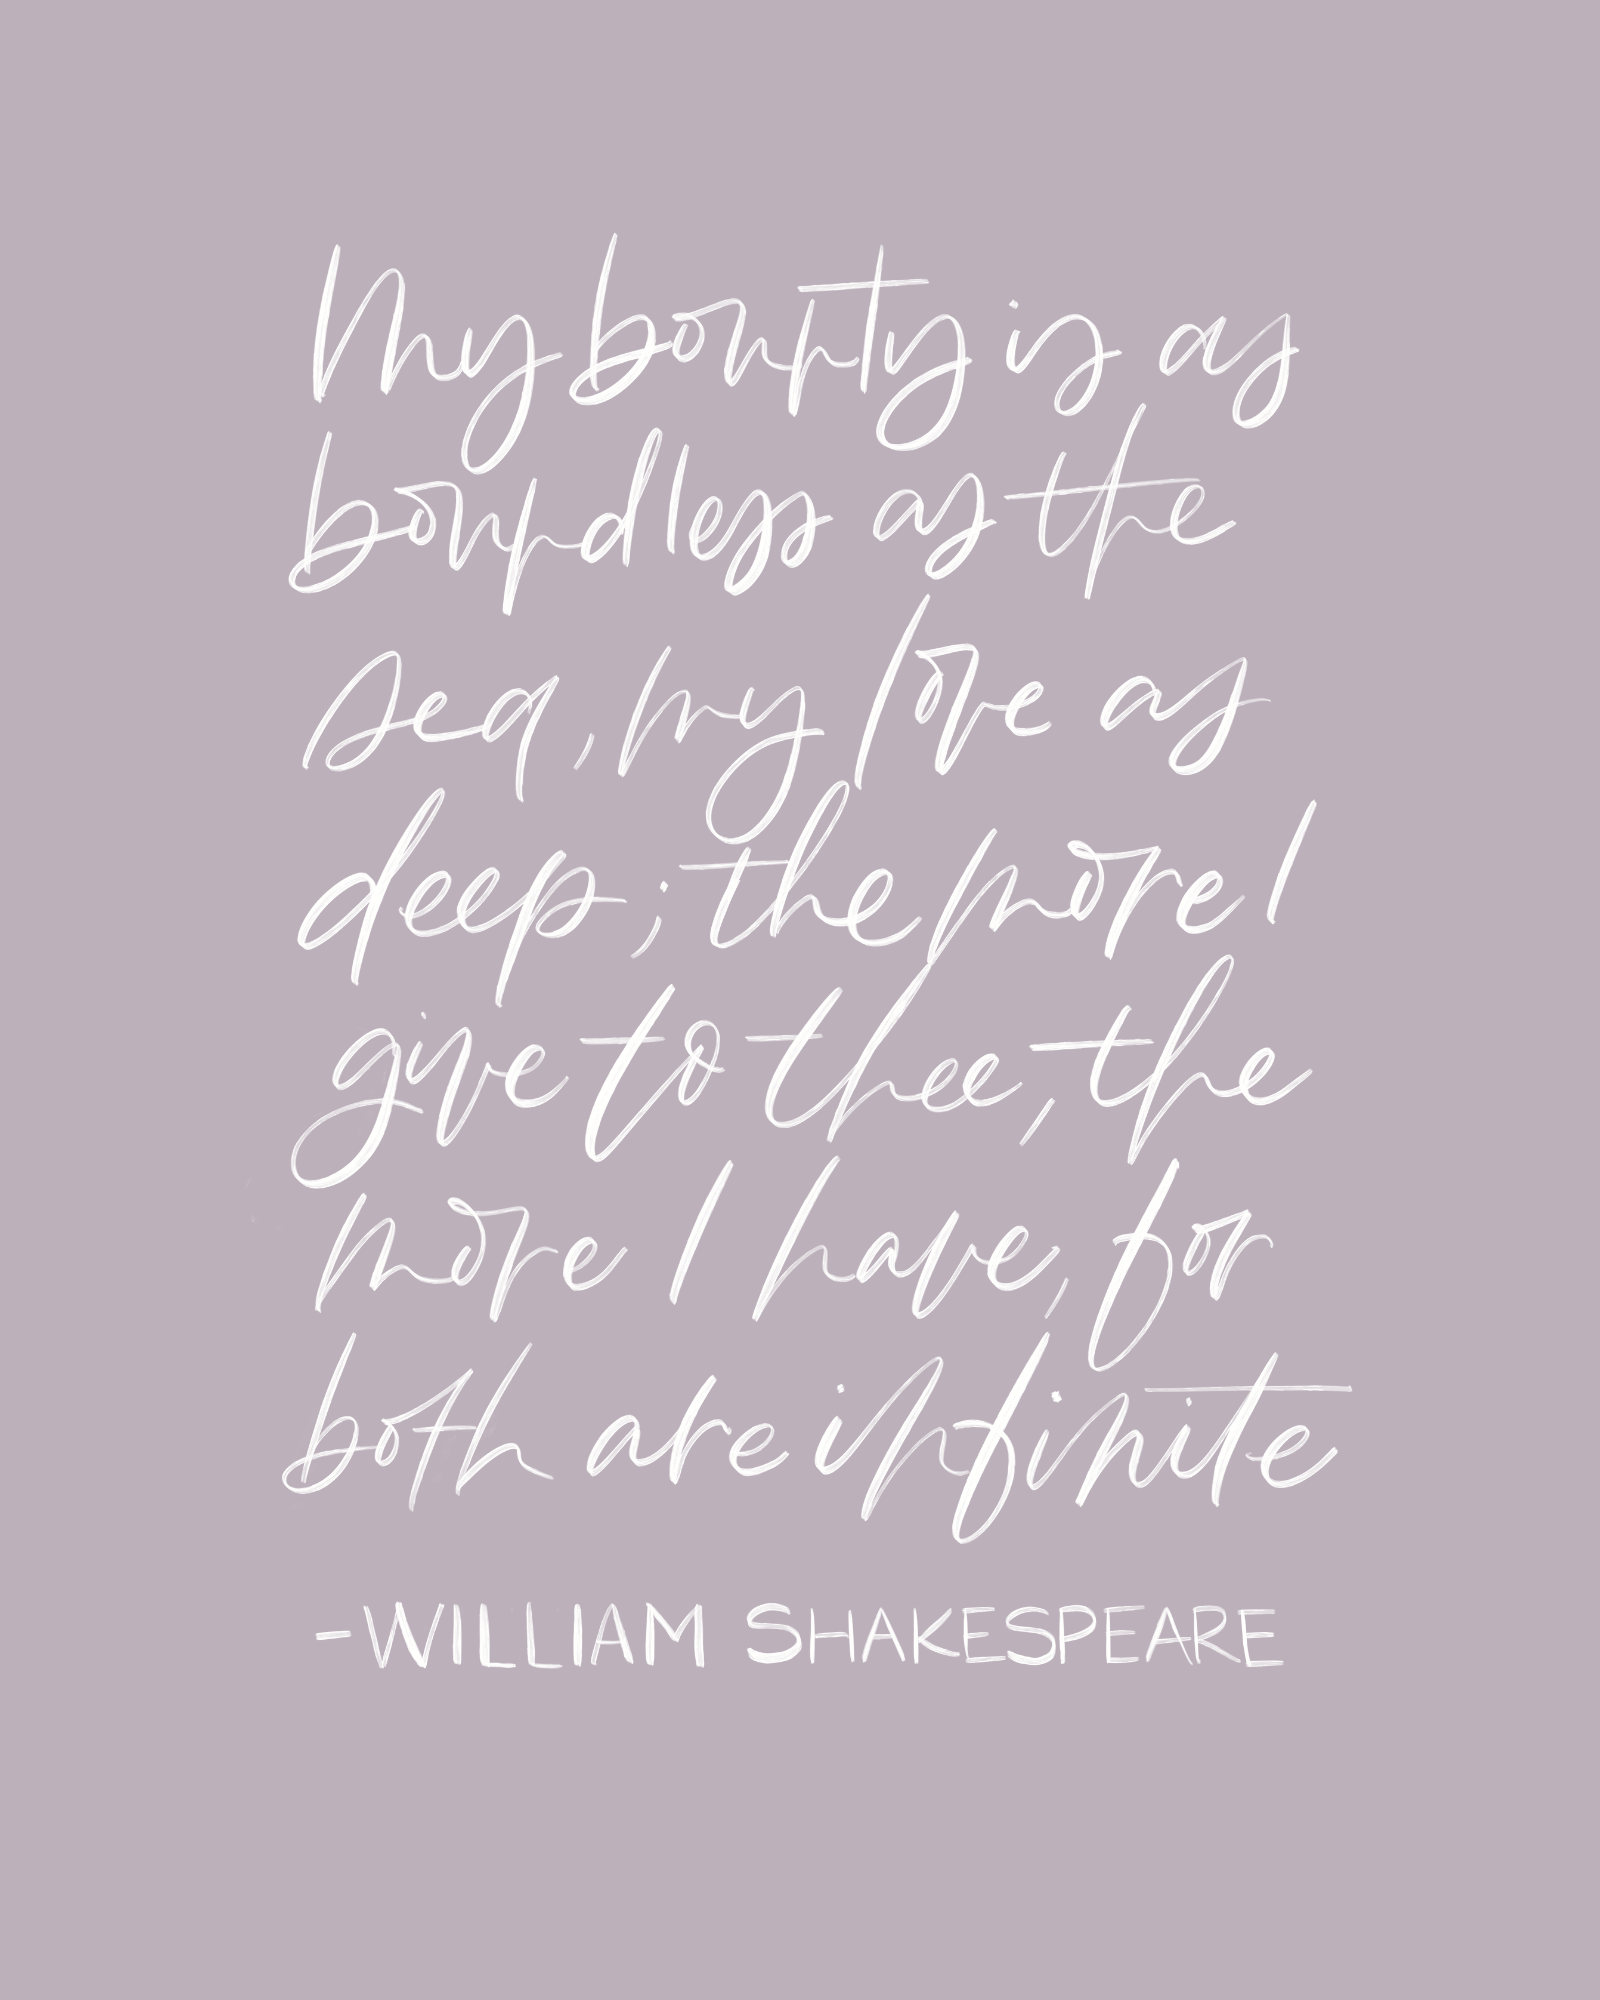 My bounty is as
boundless as the
sea, my love as
deep; the more I
give to thee, the
more I have, for
both are infinite
-WILLIAM SHAKESPEARE